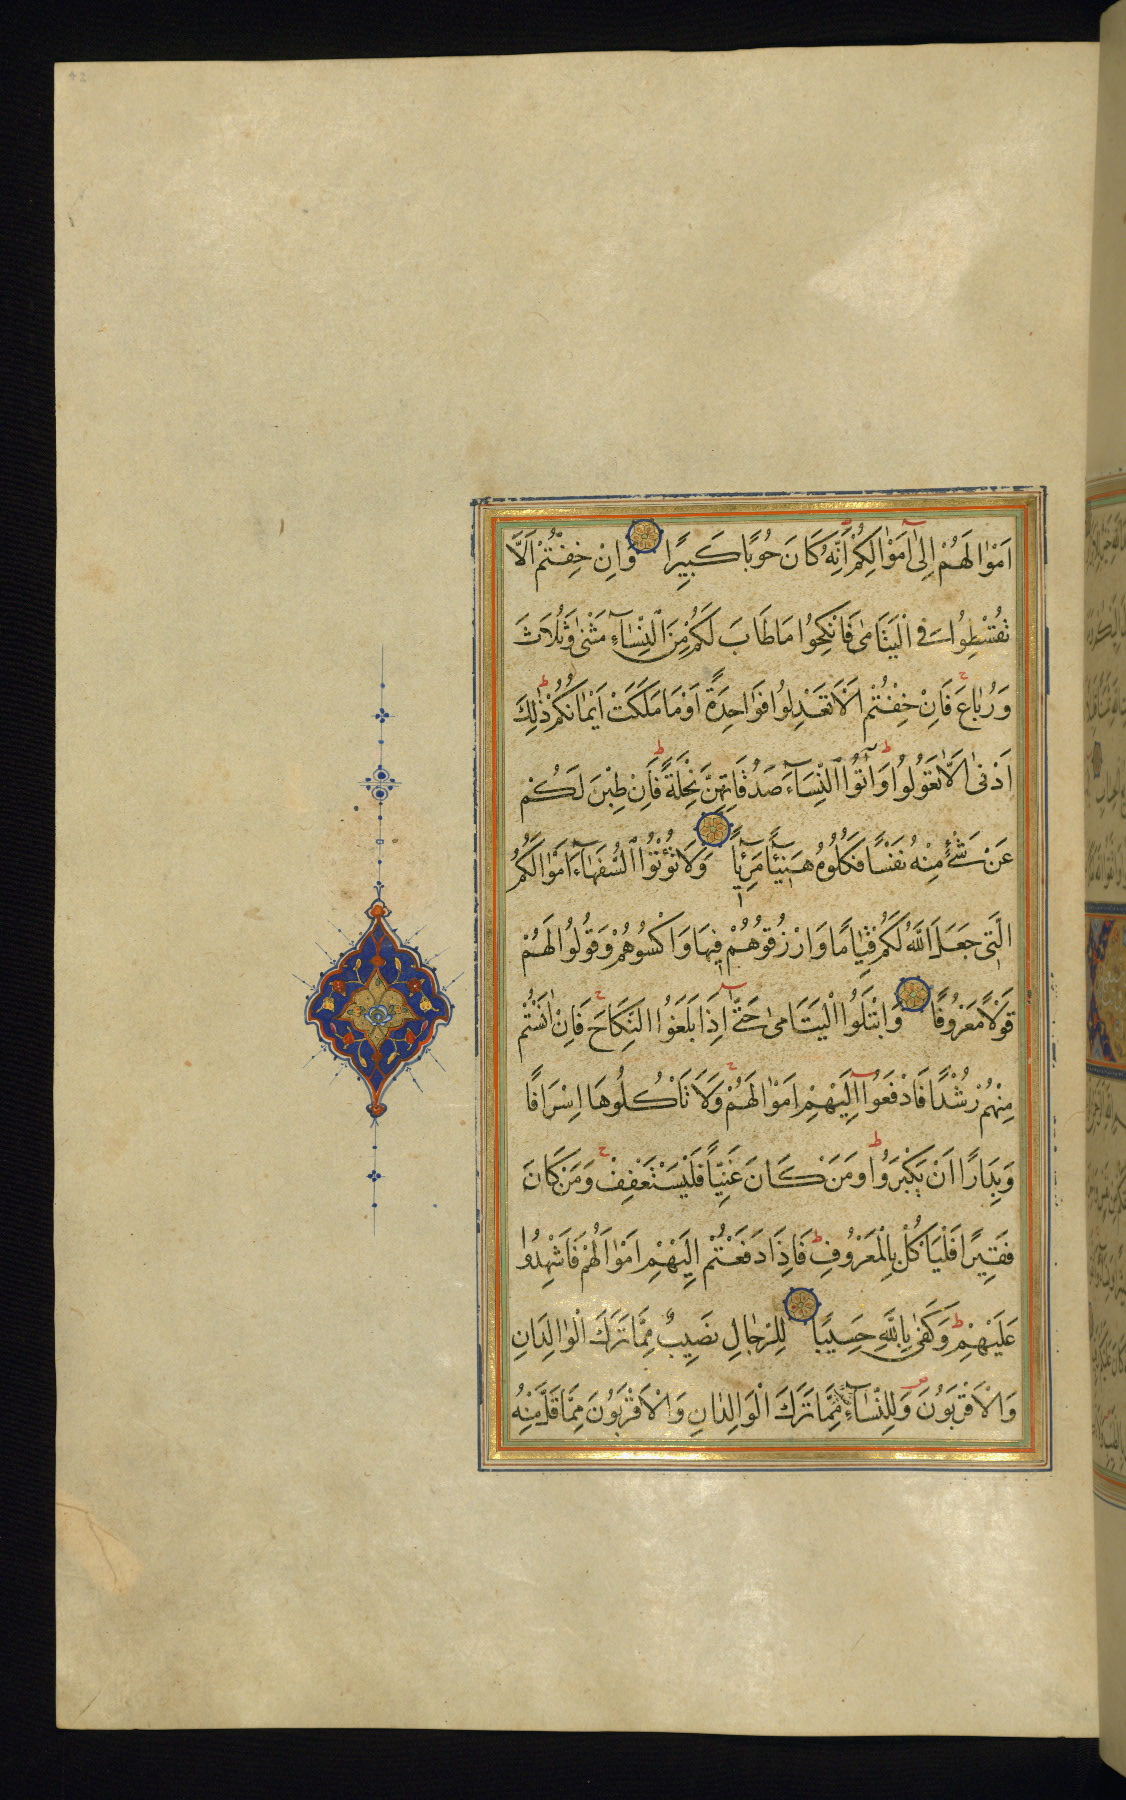 اَمْوٰالَهُمْ اِلىٰٓ اَمْوٰالِكُمْ اِنَّهُ كَانَ حُوبًا كَبِيرًا وَاِنْ خِفْتُمْ اَلَّا
تُقْسِطُوا فِي الْيَتَامىٰ فَانْكِحُوا مَا طَابَ لَكُمْ مِنَ النِّسَآءِ مَثْنىٰ وَثُلَاثَ
وَرُبَاعَ فَاِنْ خِفْتُمْ اَلَّا تَعْدِلُوا فَوَاحِدَةً اَوْ مَا مَلَكَتْ اَيْمَانُكُمْ ذٰلِكَ
اَدْنىٰ اَلَّا تَعُولُوا وَاٰتُوا النِّسَآءَ صَدُقَاتِهِنَّ نِحْلَةً فَاِنْ طِبْنَ لَكُمْ
عَنْ شَيْءٍ مِنْهُ نَفْسًا فَكُلُوهُ هَنِيٓئًا مَرِيٓئًا وَلَا تُؤْتُوا السُّفَهَآءَ اَمْوٰالَكُمُ
الَّتِي جَعَلَ اللّٰهُ لَكُمْ قِيَامًا وَارْزُقُوهُمْ فِيهَا وَاكْسُوهُمْ وَقُولُوا لَهُمْ
قَوْلًا مَعْرُوفًا وَابْتَلُوا الْيَتَامىٰ حَتّٰىٓ اِذَا بَلَغُوا النِّكَاحَ فَاِنْ اٰنَسْتُمْ
مِنْهُمْ رُشْدًا فَادْفَعُوٓا اِلَيْهِمْ اَمْوٰالَهُمْ وَلَا تَأْكُلُوهَا اِسْرَافًا
وَبِدَارًا اَنْ يَكْبَرُوا وَمَنْ كَانَ غَنِيًّا فَلْيَسْتَعْفِفْ وَمَنْ كَانَ
فَقِيرًا فَلْيَأْكُلْ بِالْمَعْرُوفِ فَاِذَا دَفَعْتُمْ اِلَيْهِمْ اَمْوٰالَهُمْ فَاَشْهِدُوا
عَلَيْهِمْ وَكَفىٰ بِاللّٰهِ حَسِيبًا لِلرِّجَالِ نَصِيبٌ مِمَّا تَرَكَ الْوٰالِدَانِ
وَالْاَقْرَبُونَ وَلِلنِّسَآءِ مِمَّا تَرَكَ الْوَالِدَانِ وَالْاَقْرَبُونَ مِمَّا قَلَّ مِنْهُ